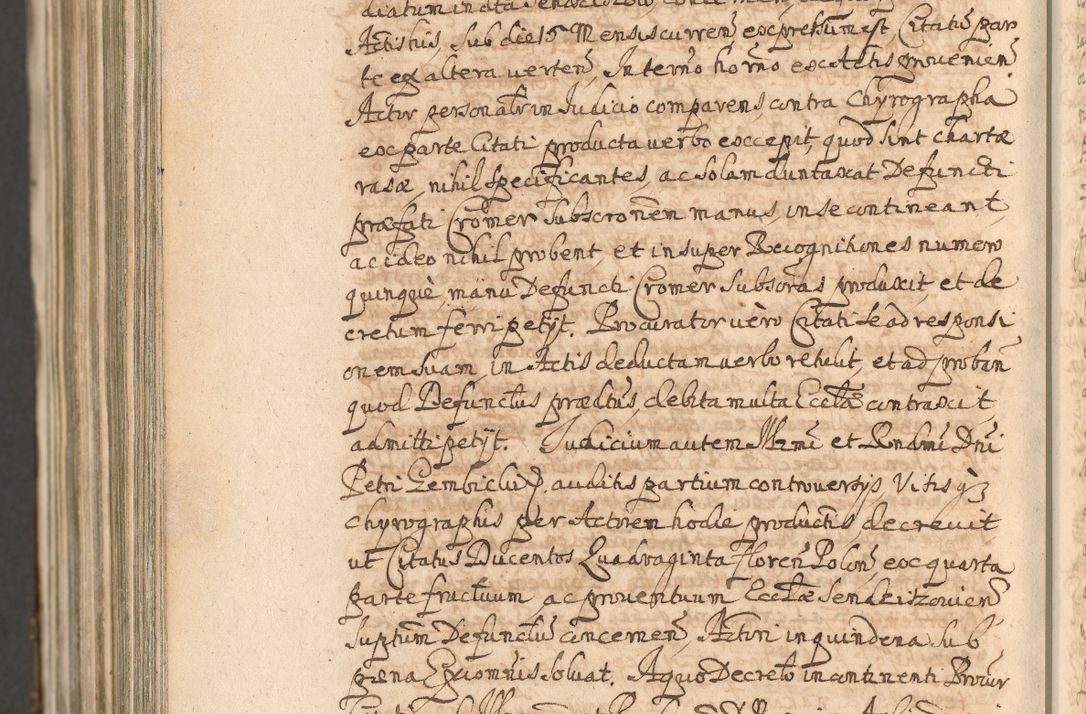 Actis huis, Sub die 15 Mensis curren̄ expressum est, Citati par
te ex altera verten̄, In termō hor̄no ex Actis provenien̄
Actor personalr̄ in Iudicio comparens, contra Chyrographa
ex parte Citati producta verbo excepit, quod sint chartæ
rasæ, nihil specificantes, ac solam duntaxat Defuncti
præfati Cromer subscronēm manus, in se contineant,
ac ideo nihil probent, et insuper Recognitiones numero
quinquè, manu Defuncti Cromer subscrās produxit, et de
cretum ferri petÿt. Procurator verò Citati se ad responsi
onem suam, in Actis deductam verbo retulit, et ad proban̄
quod Defunctus prædtūs, debita multa Eccłæ contraxit,
admitti petÿt. Iudicium autem Illr̄mi et Rn̄dmi Dn̄i
Petri Gembicki P. auditis partium controversÿs, Visis qz
chyrographis per Actorem hodie productis, decrevit
ut Citatus Ducentos Quadraginta Floren̄ Polon̄, ex quarta
parte fructuum, ac proventuum Eccłæ Sendziszovien̄
suptum Defunctū concernen̄, Actori in quindena sub
pœna Excom̄nis solvat. A quo Decreto incontinenti Procur